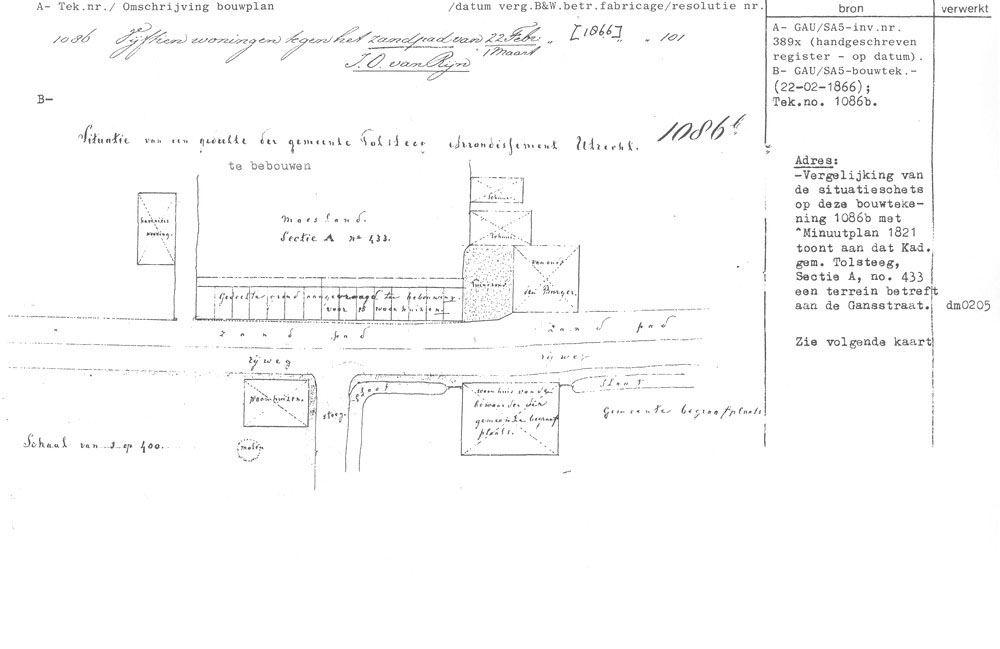 A- Tek.nr./ Omschrijving bouwplan /datum verg.B&W.betr.fabricage/resolutie nr.
bron
verwerkt
1086 Vijftien woningen tegen het zandpad van 22 Febr „ [1866] „ „ 101
1 Maart
J. O. van Rijn
A- GAU/SA5-inv.nr.
389x (handgeschreven
register - op datum).
B- GAU/SA5-bouwtek.-
(22-02-1866);
Tek.no. 1086b.
B-
1086b
Situatie van een gedeelte der gemeente Tolsteeg arrondissement Utrecht.
te bebouwen
Adres:
-Vergelijking van
de situatieschets
op deze bouwteke-
ning 1086b met
^Minuutplan 1821
toont aan dat Kad.
gem. Tolsteeg,
Sectie A, no. 433
een terrein betreft
aan de Gansstraat.
dm0205
Zie volgende kaart
Schuur
Schuur
woning.
moesland.
Sectie A no 433.
Tuingrond
den Burger.
Gedeelte grond aangevraagd ter bebouwing
voor 15 woonhuizen.
zand pad
zand pad
rijweg
rijweg
Woonhuizen.
steeg.
sloot
woonhuis van den
bewaarder der
gemeente begraaf
plaats.
sloot
Gemeente begraafplaats
Schaal van 1 op 400.
molen